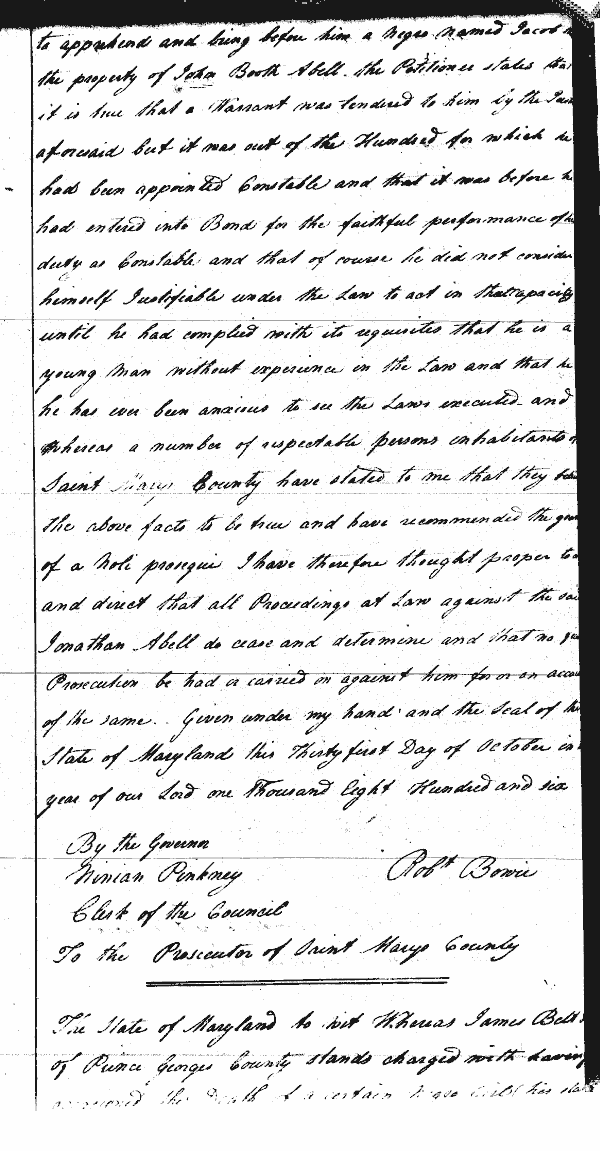 to apprehend and bring before him a Negro named Jacob
the property of John Booth Abell. the Petitioner states that
it is true that a Warrant was tendered to him by the
aforesaid but it was out of the Hundred for which he
had been appointed Constable and that it was before h
had entered into Bond for the faithful performance of
duty as Constable and that of course he did not consider
himself Justifiable under the Law to act in that capacity
until he had complied with its requisites that he is a
young Man without experience in the Law and that he
he has ever been anxious to see the Laws executed and
whereas a number of respectable persons inhabitants
Saint Marys County have stated to me that they
the above facts to be true and have recommended the
of a Noli prosequi I have therefore thought proper to
and direct that all Proceedings at Law against the
Jonathan Abell do cease and determine and that no
Prosecution be had or carried on against him for or on
of the same. Given under my hand and the Seal of the
State of Maryland this Thirty first Day of October in
year of our Lord one Thousand Eight Hundred and six
By the Governor
Ninian Pinkney Robt Bowie
Clerk of the Council
To the Prosecutor of Saint Marys County
The State of Maryland to wit Whereas James Belt
of Prince Georges County stands charged with having
occasioned the Death of a certain his